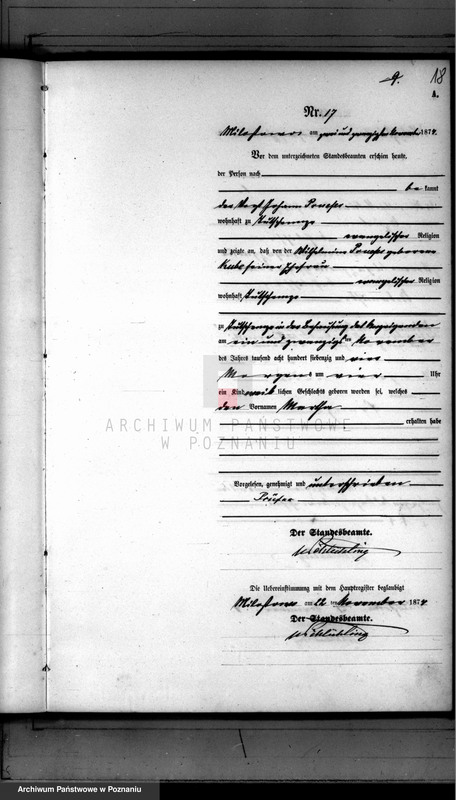 9. 18
A.
Nr. 17
Milostowo am zwei und zwanzigsten November 1874.
Vor dem unterzeichneten Standesbeamten erschien heute,
der Person nach
be kannt
der Johann
wohnhaft zu
evangelischer Religion
und zeigte an, daß von der Wilhelmine geborene
seiner Ehefrau
evangelischer Religion
wohnhaft
zu in der Behausung des Anzeigenden
am ein und zwanzigsten November
des Jahres tausend acht hundert siebenzig und vier
Morgens um vier Uhr
ein Kind weiblichen Geschlechts geboren worden sei, welches
den Vornamen Martha
erhalten habe
ARCHIWUM PAŃSTWOWE
W POZNANIU
Vorgelesen, genehmigt und unterschrieben
Der Standesbeamte.
Die Uebereinstimmung mit dem Hauptregister beglaubigt
Milostowo am 22 ten November 1874
Der Standesbeamte.
Archiwum Państwowe w Poznaniu
Archiwum Państwowe w Poznaniu